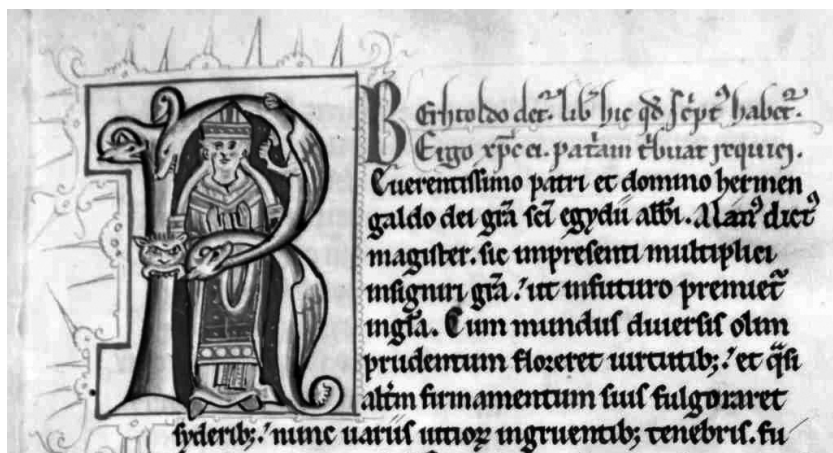 Berhtoldo det᷑. lib᷑ hic qd̄ sc̓pt᷒ habet᷑.
Ergo xp̄c ei. pat̓am t̓buat requiei.
Reuerentissimo patri et domino hermen
galdo dei gr̄a sc̄i egydii abb̄i. Alan᷒ dict᷒
magister. sic inpresenti multiplici
insigniri gr̄a. ut infuturo premiet᷑
ingl̄a. Cum mundus diuersis olim
prudentum floreret uirtutib; et q̄si
alt̄m firmamentum suis fulgoraret
syderib; nunc uariis uitioꝝ ingruentib; tenebris. fu